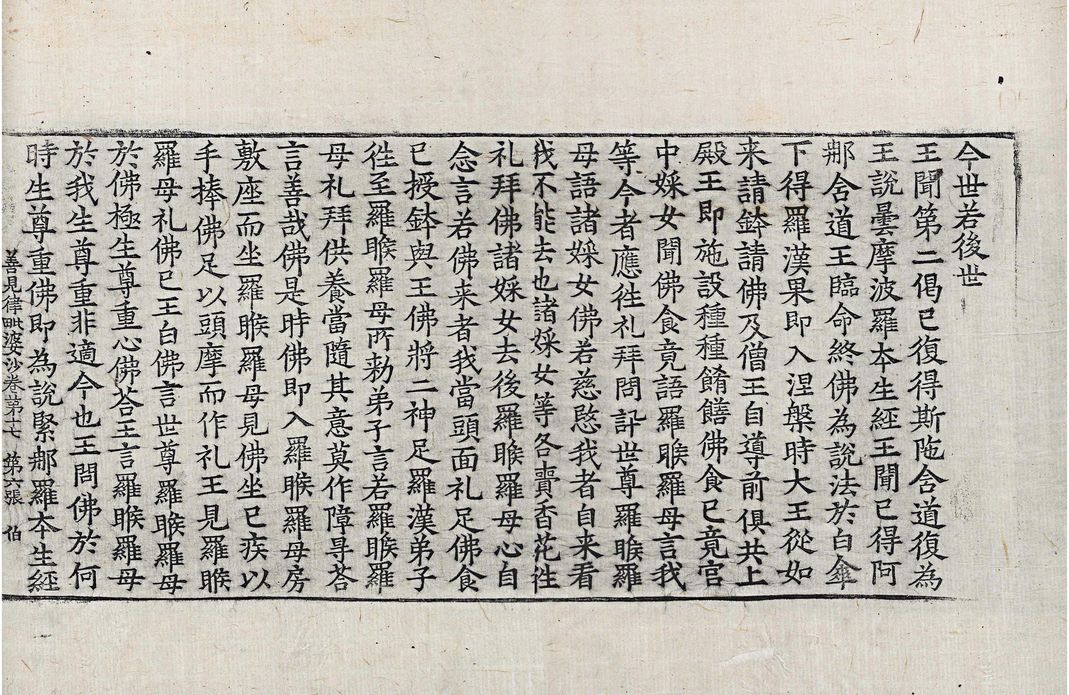 今世若後世
王聞第二偈已復得斯陁含道復為
王說曇摩波羅夲生經王聞已得阿
郍含道王臨命終佛為說法於白傘
下得羅漢果即入涅槃時大王從如
来請鉢請佛及僧王自導前俱共上
殿王即施設種種餚饍佛食已竟官
中婇女聞佛食竟語羅睺羅母言我
等今者應徃礼拜問訊世尊羅睺羅
母語諸婇女佛若慈愍我者自来看
我不能去也諸婇女等各賷香花徃
礼拜佛諸婇女去後羅睺羅母心自
念言若佛来者我當頭面礼足佛食
已授鉢與王佛將二神足羅漢弟子
徃至羅睺羅母所勑弟子言若羅睺羅
母礼拜供養當隨其意莫作障㝵荅
言善哉佛是時佛即入羅睺羅母房
敷座而坐羅睺羅母見佛坐已疾以
手捧佛足以頭摩而作礼王見羅睺
羅母礼佛已王白佛言世尊羅睺羅母
於佛極生尊重心佛荅王言羅睺羅母
於我生尊重非適今也王問佛於何
時生尊重佛即為說緊郍羅夲生經
善見律毗婆沙卷苐十七 苐六張 伯